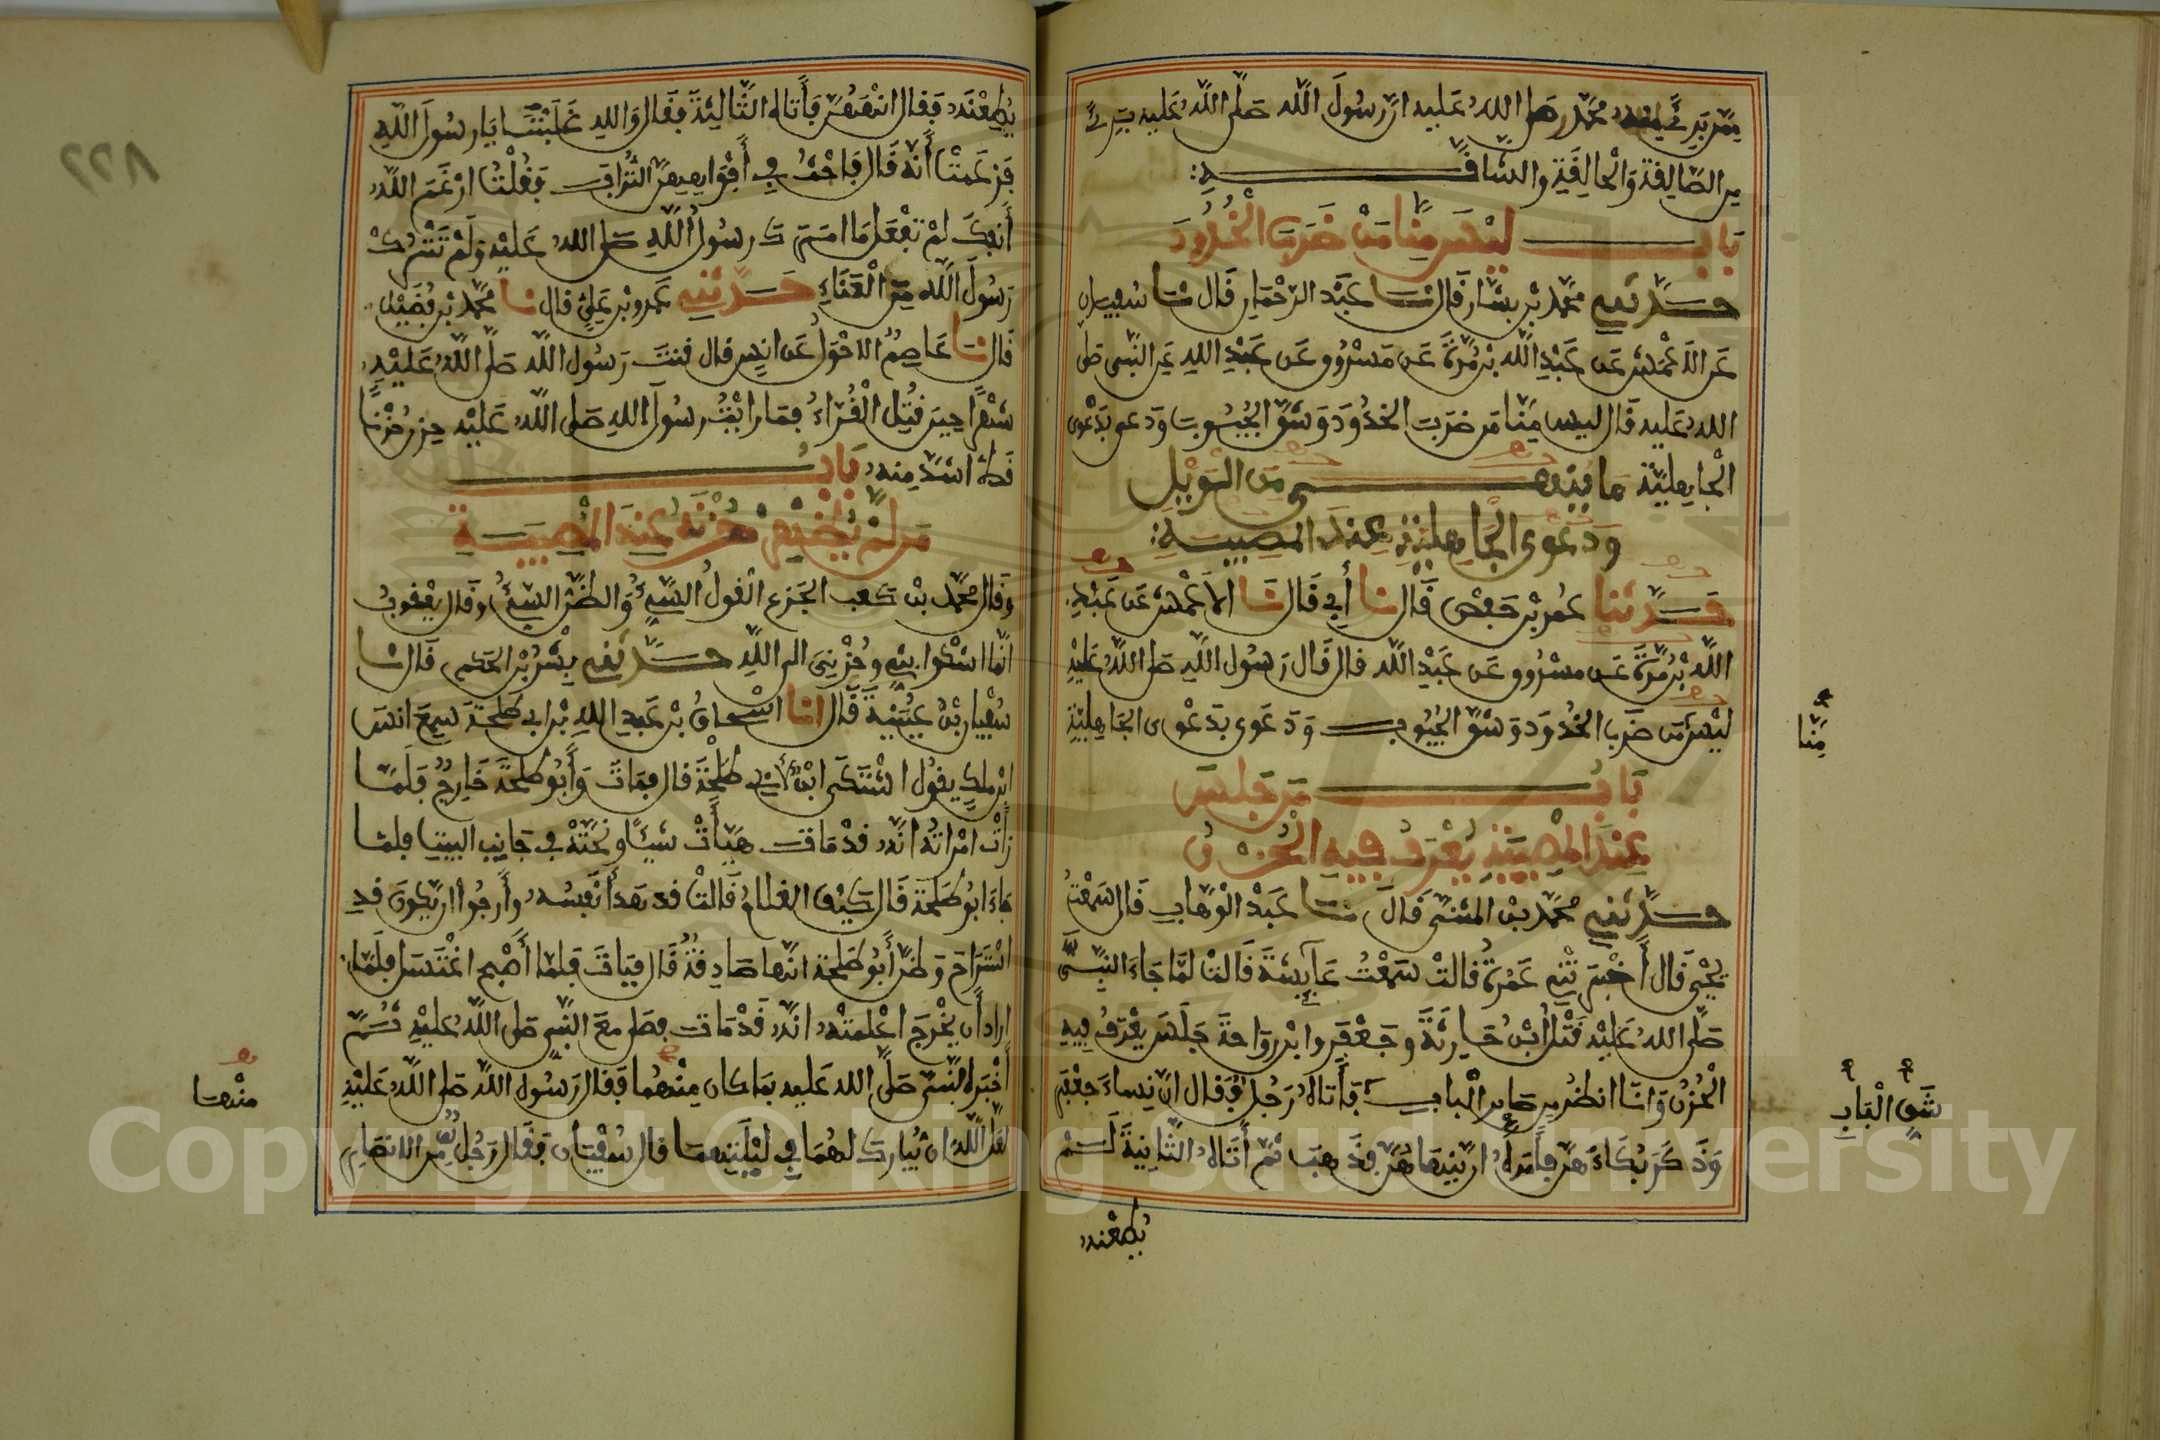 ممن برئ منه محمد صلى الله عليه ان رسول الله صلى الله عليه برئ
من الصالقة والحالقة والشاقة
باب ليس منا من ضرب الخدود
حدثني محمد بن بشار قال نا عبد الرحمان قال نا سفيان
عن الاعمش عن عبد الله بن مرة عن مسروق عن عبد الله عن النبي صلى
الله عليه قال ليس منا من ضرب الخدود وشق الجيوب ودعى بدعوى
الجاهلية ما ينهى من الويل
ودعوى الجاهلية عند المصيبة
حدثنا عمر بن حفص قال نا أبي قال نا الأعمش عن عبد
الله بن مرة عن مسروق عن عبد الله قال قال رسول الله صلى الله عليه
ليس من ضرب الخدود وشق الجيوب ودعوى بدعوى الجاهلية
منا
باب من جلس
عند المصيبة يعرف فيه الحزن
حدثني محمد بن المثنى قال نا عبد الوهاب قال سمعت
يحيى قال أخبرتني عمرة قالت سمعت عايشة قالت لما جاء النبي
صلى الله عليه قتل ابن حارثة وجعفر وابن رواحة جلس يعرف فيه
الحزن وانا انظر من صاير الباب فأتاه رجل فقال ان نساء جعفر
شق الباب
وذكر بكاءهن فأمره ان ينهاهن فذهب ثم أتاه الثانية لم
يطعنه
يطعنه فقال انههن فأتاه الثالثة فقال والله غلبننا يا رسول الله
فزعمت أنه قال فاحث في أفواههن التراب فقلت ارغم الله
أنفك لم تفعل ما امرك رسول الله صلى الله عليه ولم تترك
رسول الله من العناء حدثني عمرو بن علي قال نا محمد بن فضيل
قال نا عاصم الاحول عن انس قال قنت رسول الله صلى الله عليه
شهرا حين قتل القراء فما رأيت رسول الله صلى الله عليه حزن حزنا
قط اشد منه باب
من لم يظهر حزنه عند المصيبة
وقال محمد بن كعب الجزع القول السيئ والظن السيئ وقال يعقوب
انما اشكوا بثي وحزني الى الله حدثني بشر بن الحكم قال نا
سفيان بن عيينة قال انا اسحاق بن عبد الله بن ابي طلحة سمع انس
ابن ملك يقول اشتكى ابن لأبي طلحة قال فمات وأبو طلحة خارج فلما
رأت امراته انه قد مات هيأت شيئا ونحته في جانب البيت فلما
جاء ابو طلحة قال كيف الغلام قالت قد هدأ نفسه وأرجوا ان يكون قد
استراح وظن أبو طلحة انها صادقة قال فبات فلما أصبح اغتسل فلما
اراد أن يخرج اعلمته انه قد مات فصلى مع النبي صلى الله عليه ثم
أخبر النبي صلى الله عليه بما كان منهما فقال رسول الله صلى الله عليه
منها
لعل الله ان يبارك لهما في ليلتهما قال سفيان فقال رجل من الانصار
Copyright © King Saud University